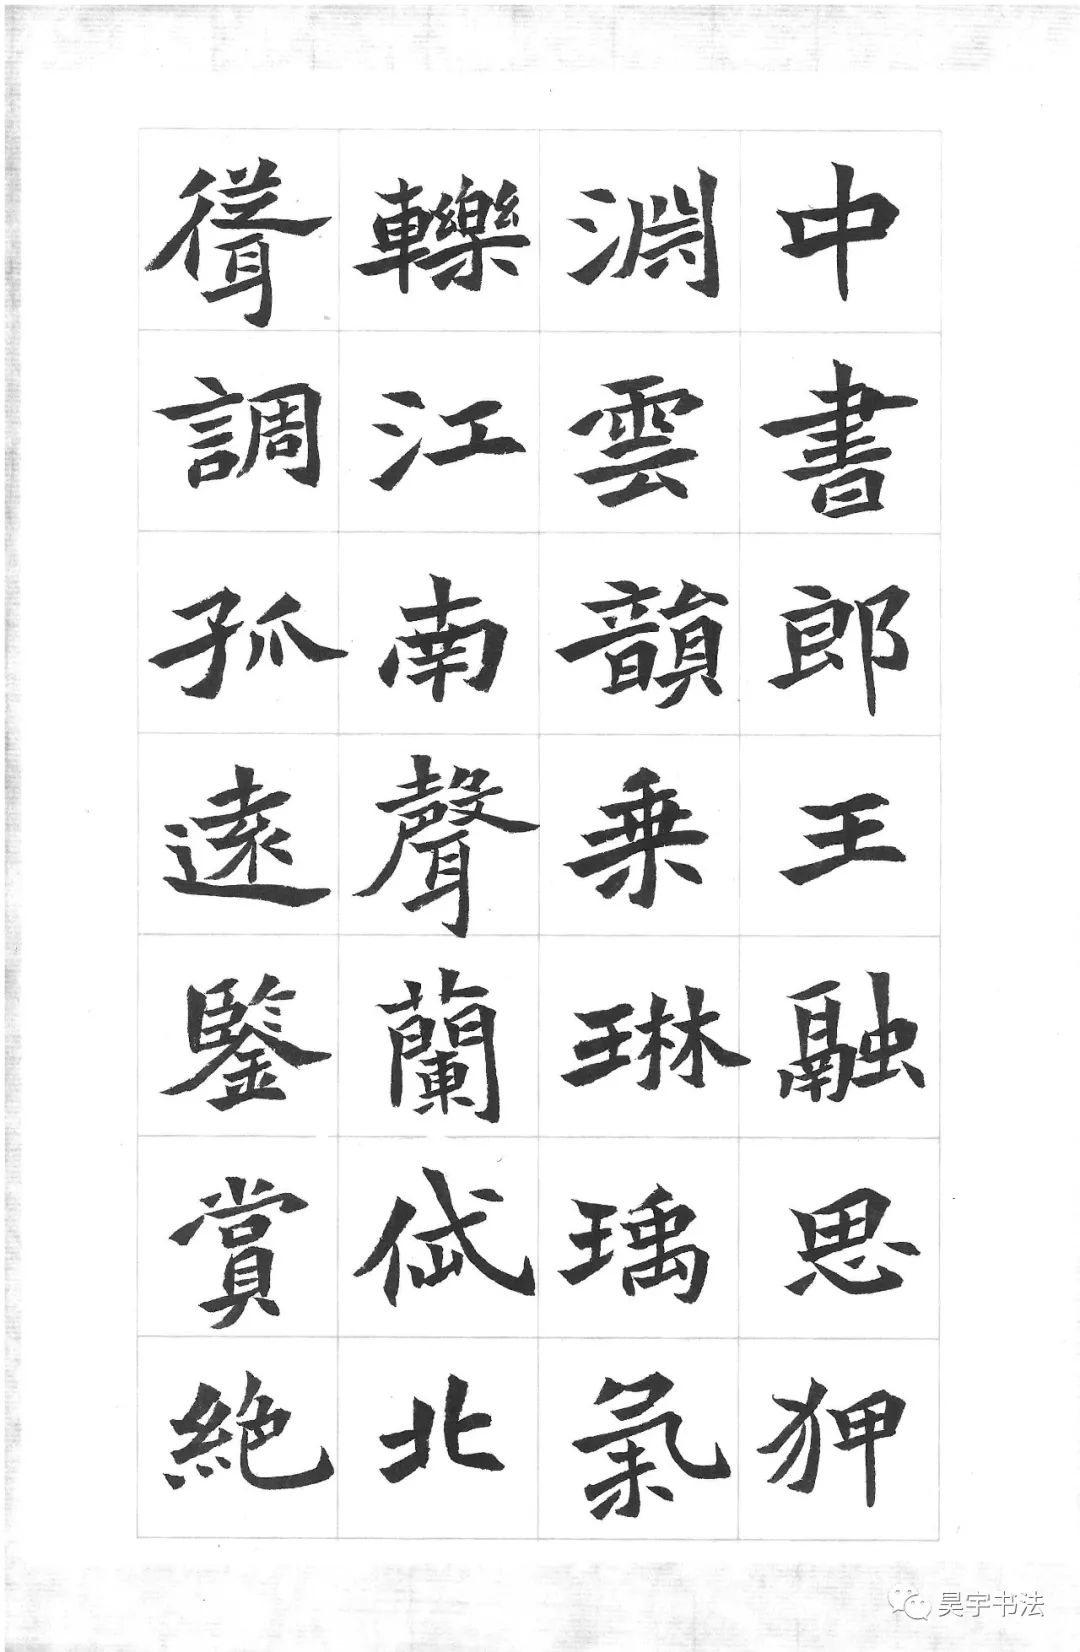 中書郎王融思狎
淵雲韻乗琳瑀氣
轢江南聲蘭岱北
聳調孤遠鑒賞絶
昊宇书法